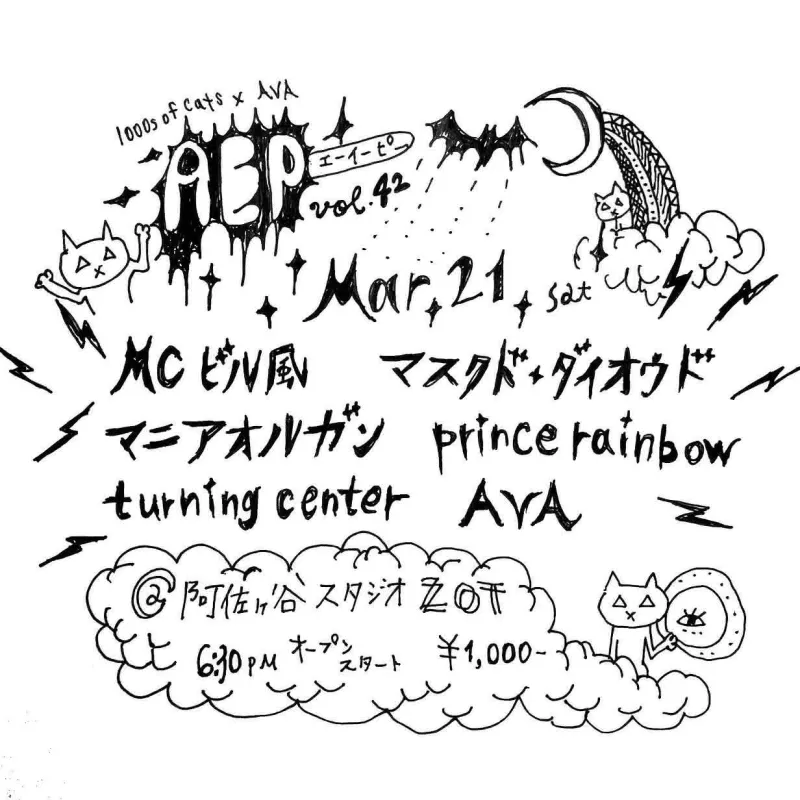 1000s of cats x AVA
AEP エーイーピー
vol.42
Mar. 21. sat
MC ビル風 マスクド・ダイオウド
マニアオルガン prince rainbow
turning center AVA
@阿佐ヶ谷 スタジオ ZOT
6:30PM オープン スタート ¥1,000-